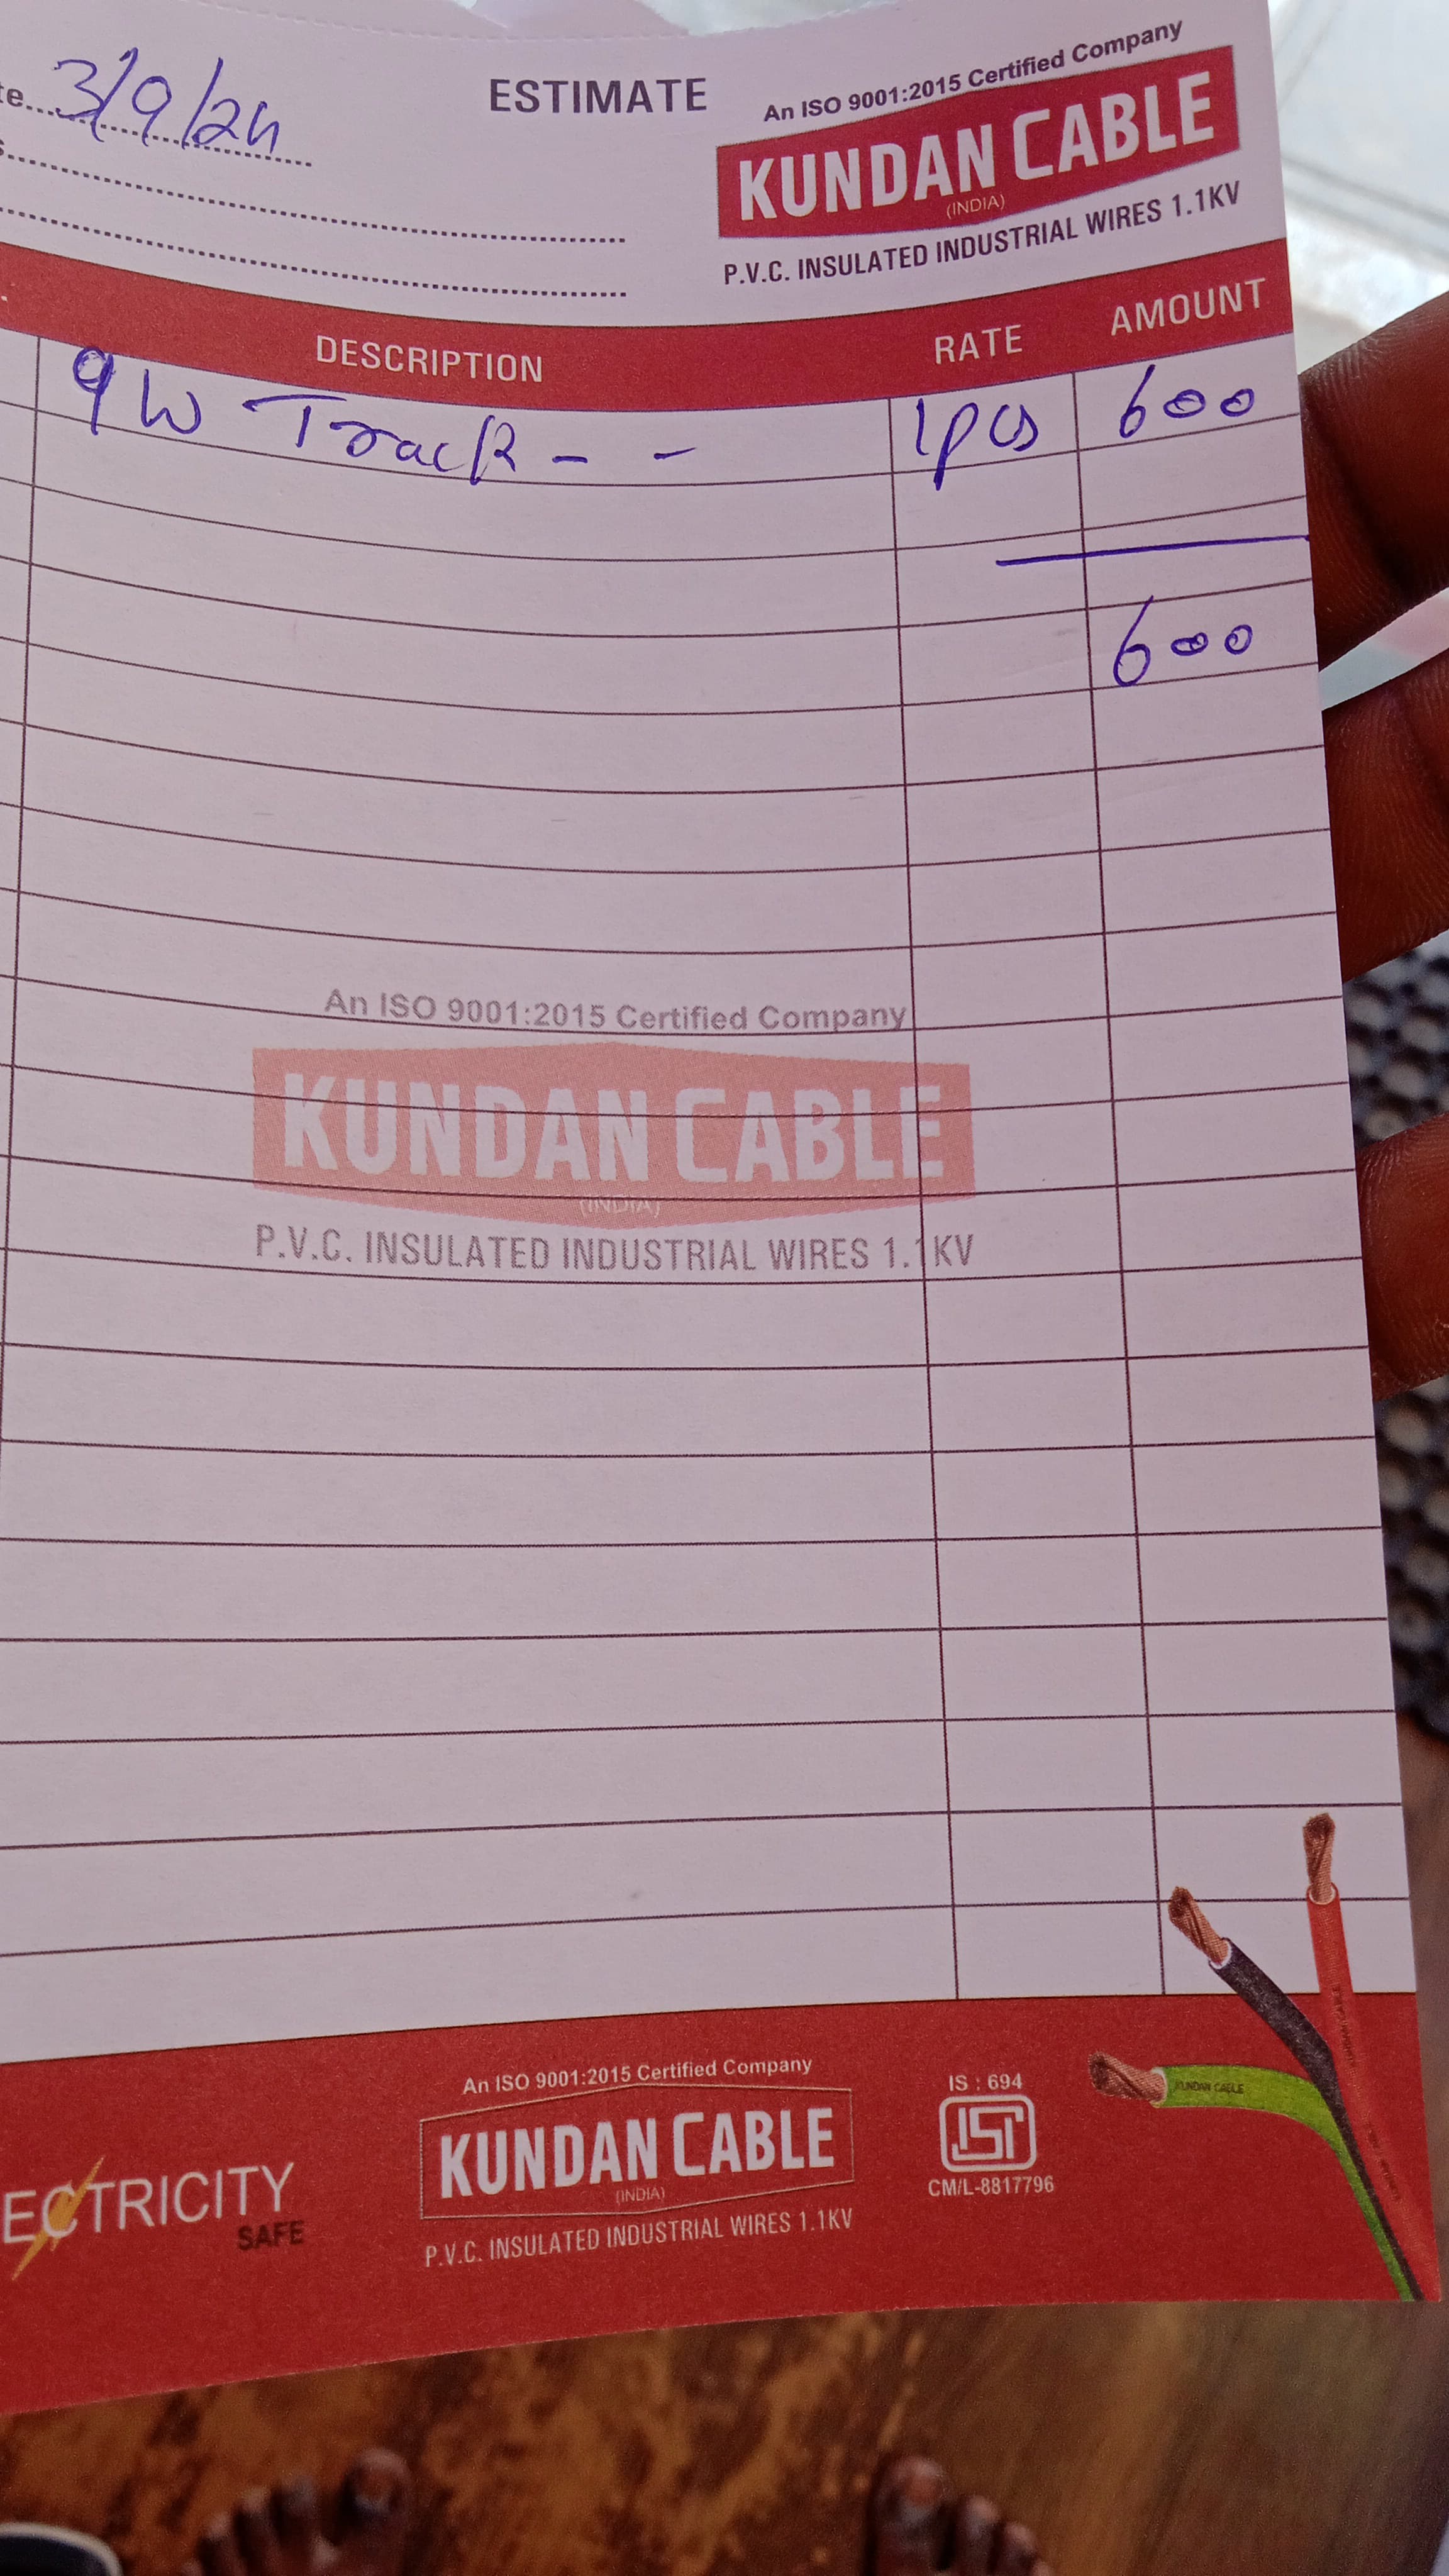 te.... 3/9/24
ESTIMATE
An ISO 9001:2015 Certified Company
KUNDAN CABLE
(INDIA)
P.V.C. INSULATED INDUSTRIAL WIRES 1.1KV
DESCRIPTION RATE AMOUNT
9W Track - - 1pcs 600
600
An ISO 9001:2015 Certified Company
KUNDAN CABLE
(INDIA)
P.V.C. INSULATED INDUSTRIAL WIRES 1.1KV
ECTRICITY
SAFE
An ISO 9001:2015 Certified Company
KUNDAN CABLE
(INDIA)
P.V.C. INSULATED INDUSTRIAL WIRES 1.1KV
IS : 694
ISI
CM/L-8817796
KUNDAN CABLE